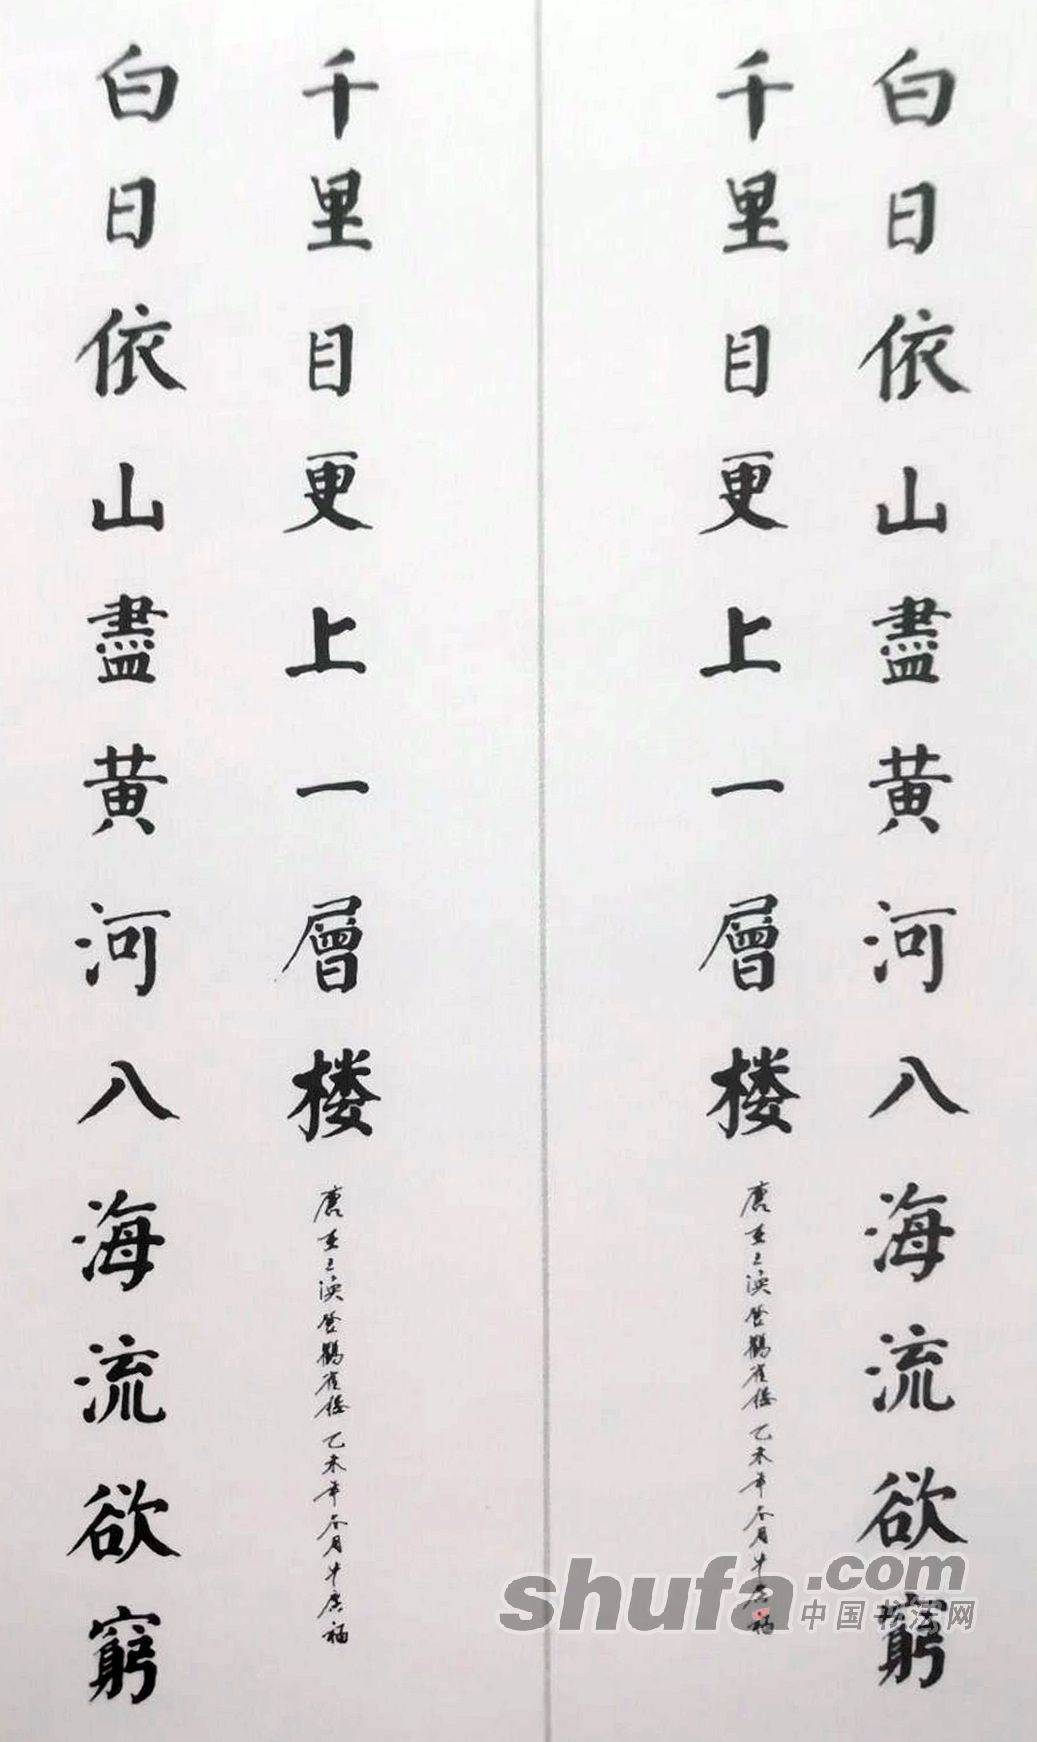 白日依山盡黄河八海流欲窮
千里目更上一層楼
唐王之渙登鸛雀楼乙未年月牛廣福
白日依山盡黄河八海流欲窮
千里目更上一層楼
唐王之渙登鸛雀楼乙未年月牛廣福
shufa.com
中国书法网